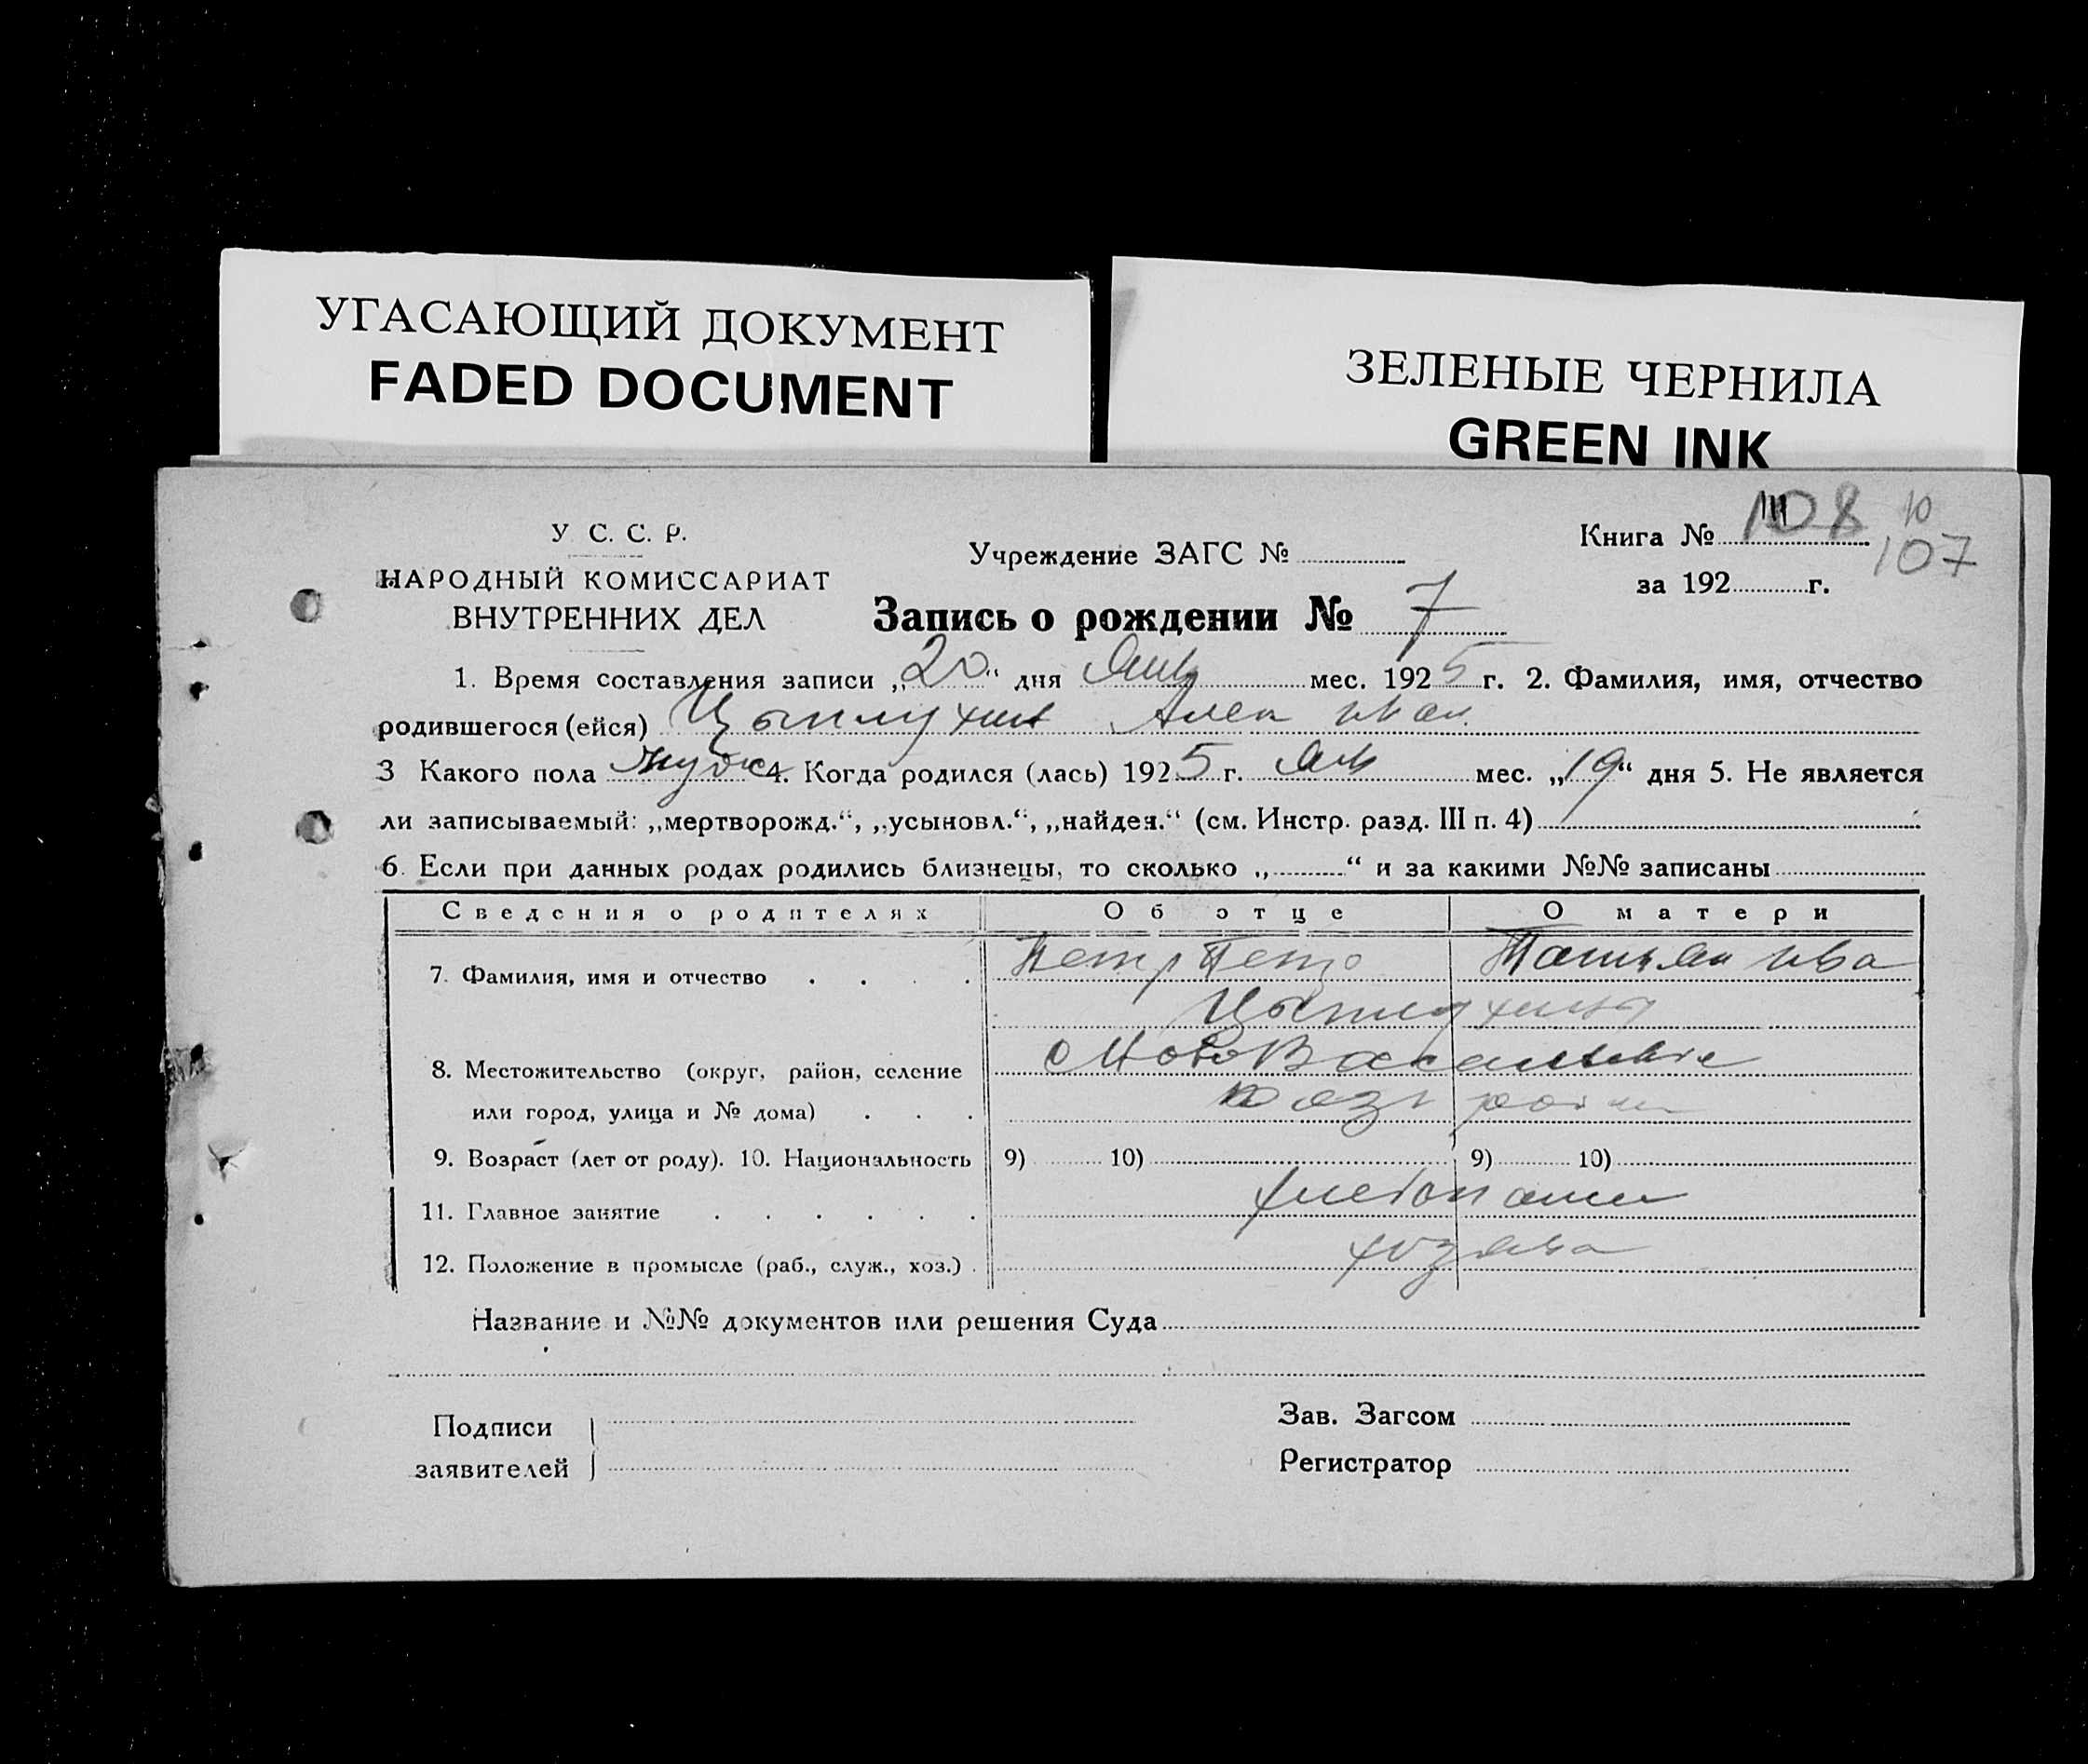 УГАСАЮЩИЙ ДОКУМЕНТ
FADED DOCUMENT
ЗЕЛЕНЫЕ ЧЕРНИЛА
GREEN INK
У С. С. Р.
НАРОДНЫЙ КОМИССАРИАТ
ВНУТРЕННИХ ДЕЛ
Учреждение ЗАГС №
Книга № 108 10
107
за 192 г.
Запись о рождении № 7
1. Время составления записи „20“ дня Янв мес. 1925 г. 2. Фамилия, имя, отчество
родившегося (ейся) Цыплухин Алек
3 Какого пола мужс 4. Когда родился (лась) 1925 г. Янв мес. „19“ дня 5. Не является
ли записываемый: „мертворожд.“, „усыновл.“, „найден.“ (см. Инстр. разд. III п. 4)
6. Если при данных родах родились близнецы, то сколько „ “ и за какими №№ записаны
Сведения о родителях Об отце О матери
7. Фамилия, имя и отчество Петр Петро Татьян Ива
Цыплухины
8. Местожительство (округ, район, селение с Ново Васильевке
или город, улица и № дома)
9. Возраст (лет от роду). 10. Национальность 9) 10) 9) 10)
11. Главное занятие хлебопашц
12. Положение в промысле (раб., служ., хоз.) хозяева
Название и №№ документов или решения Суда
Подписи
заявителей
Зав. Загсом
Регистратор